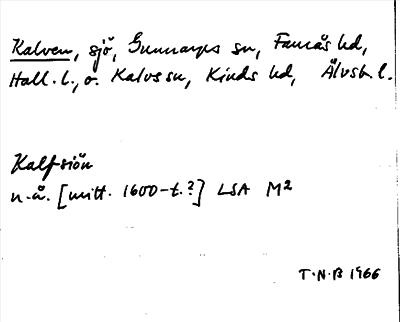 Kalven, sjö, Gunnarps sn, Faurås hd,
Hall. l., o. Kalvs sn, Kinds hd, Älvsb. l.
Kalfsiön
n.å. [mitt. 1600-t.?] LSA M2
T.N.B 1966